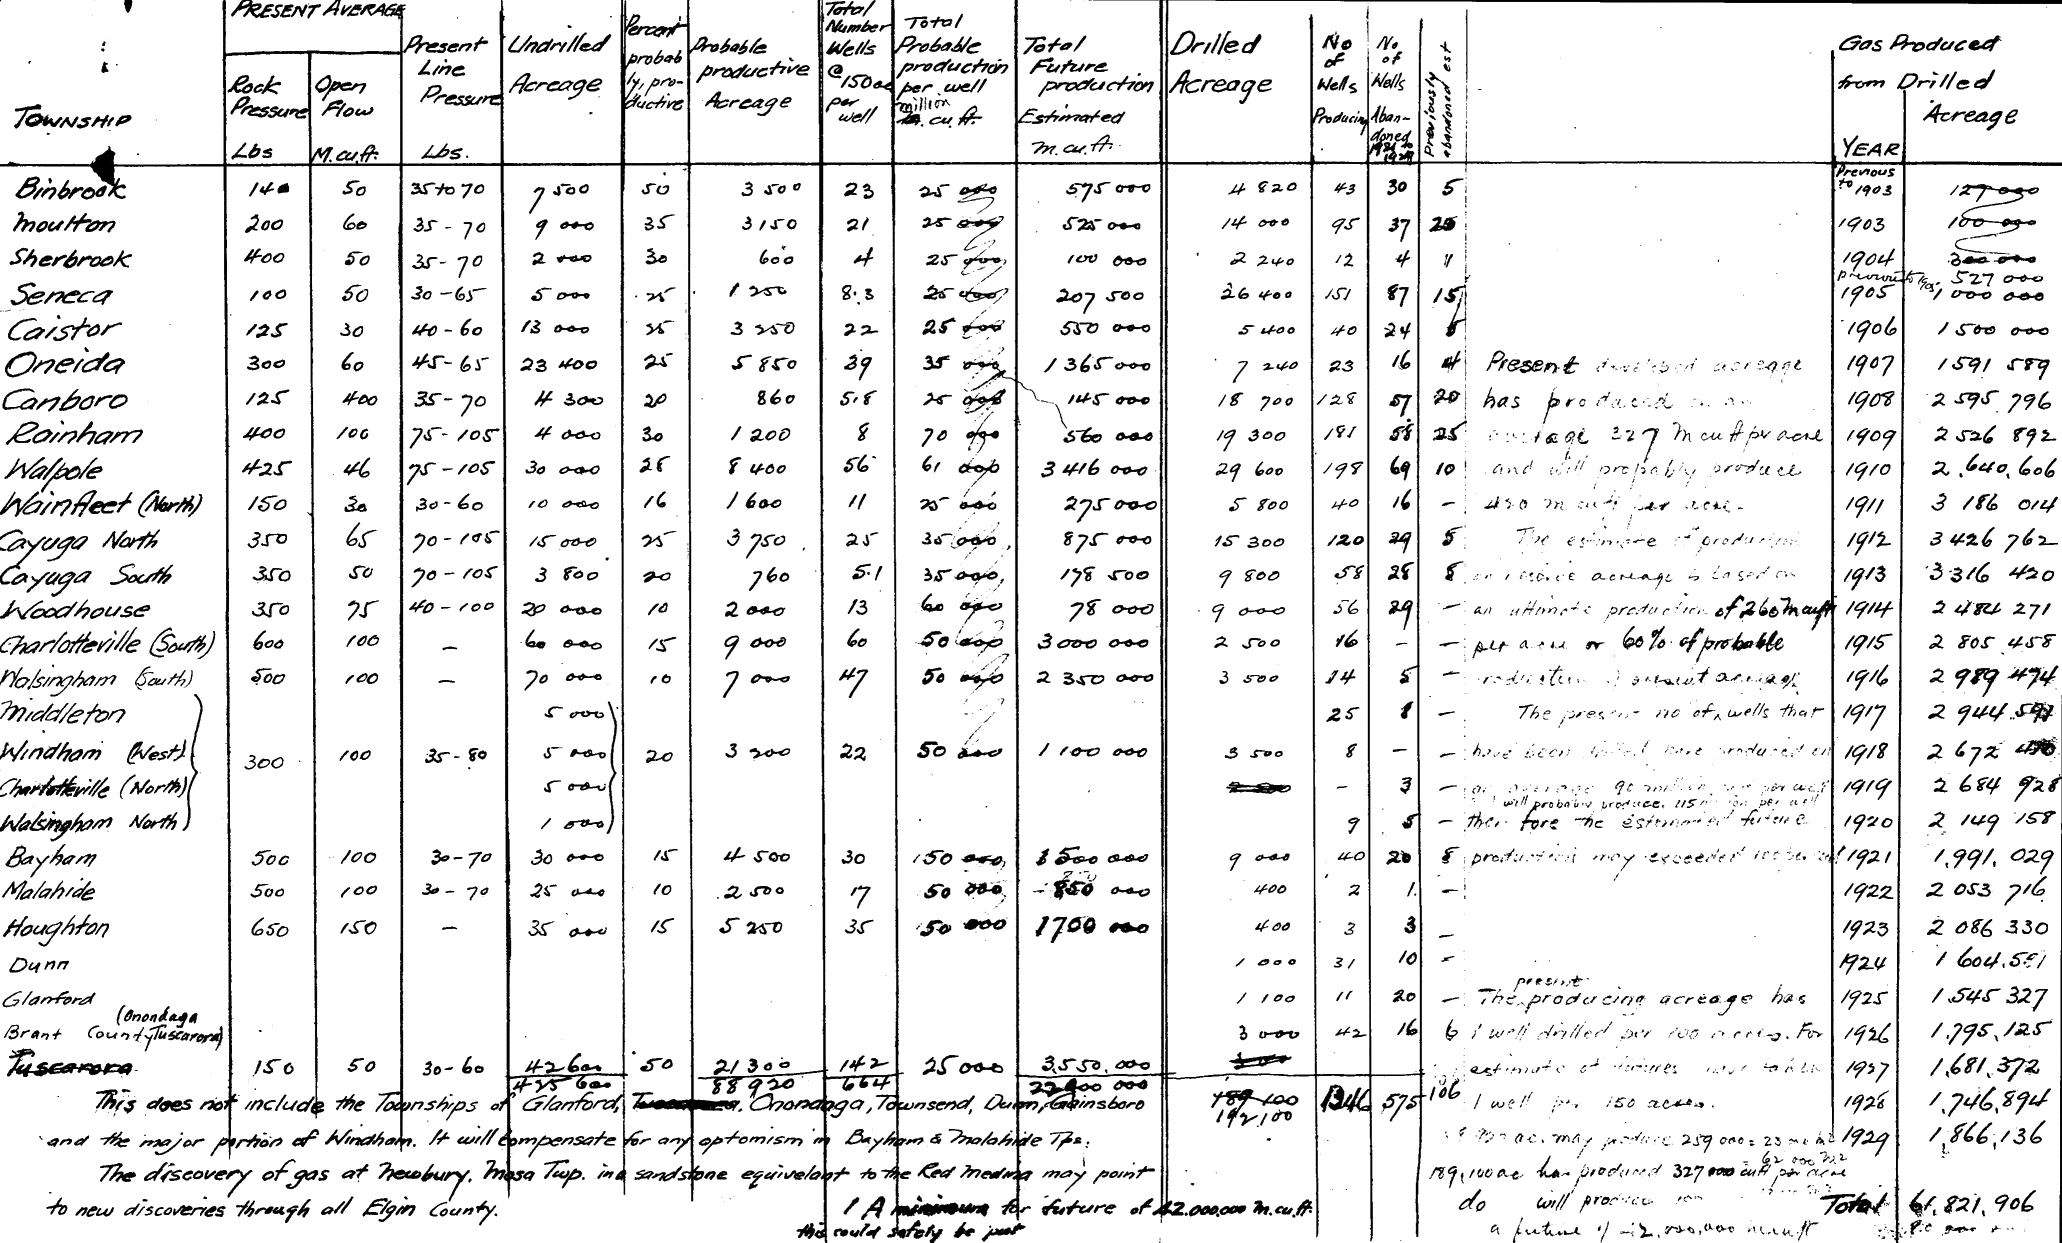 PRESENT AVERAGE
TOWNSHIP | Rock Pressure Lbs | Open Flow M.cu.ft. | Present Line Pressure Lbs. | Undrilled Acreage | Percent probably, productive | Probable productive Acreage | Total Number Wells @ 150 ac per well | Total Probable production per well million cu.ft. | Total Future production Estimated M.cu.ft. | Drilled Acreage | No of Wells Producing | No of Wells Abandoned 1921 to 1929 | Previously abandoned est | YEAR | Gas Produced from Drilled Acreage
Binbrook 140 50 35 to 70 7 500 50 3 500 23 25 000 575 000 4 820 43 30 5 Previous to 1903 127 000
Moulton 200 60 35-70 9 000 35 3 150 21 25 000 525 000 14 000 95 37 25 1903 100 000
Sherbrook 400 50 35-70 2 000 30 600 4 25 000 100 000 2 240 12 4 " 1904 300 000
previous to 1905, 527 000
Seneca 100 50 30-65 5 000 25 1 250 8.3 25 000 207 500 26 400 151 87 15 1905 1 000 000
Caistor 125 30 40-60 13 000 25 3 250 22 25 000 550 000 5 400 40 24 5 1906 1 500 000
Oneida 300 60 45-65 23 400 25 5 850 39 35 000 1 365 000 7 240 23 16 4 Present developed acreage 1907 1 591 589
Canboro 125 400 35-70 4 300 20 860 5.8 25 000 145 000 18 700 128 57 20 has produced on an 1908 2 595 796
Rainham 400 100 75-105 4 000 30 1 200 8 70 000 560 000 19 300 181 58 25 average 327 M cu ft per acre 1909 2 526 892
Walpole 425 46 75-105 30 000 28 8 400 56 61 000 3 416 000 29 600 198 69 10 and will probably produce 1910 2,640,606
Wainfleet (North) 150 30 30-60 10 000 16 1 600 11 25 000 275 000 5 800 40 16 - 430 M cu ft per acre. 1911 3 186 014
Cayuga North 350 65 70-105 15 000 25 3 750 25 35 000 875 000 15 300 120 29 5 The estimate of production 1912 3 426 762
Cayuga South 350 50 70-105 3 800 20 760 5.1 35 000 178 500 9 800 58 28 8 acreage is based on 1913 3 316 420
Woodhouse 350 75 40-100 20 000 10 2 000 13 60 000 78 000 9 000 56 29 - an ultimate production of 260 M cu ft 1914 2 484 271
Charlotteville (South) 600 100 - 60 000 15 9 000 60 50 000 3 000 000 2 500 16 - - per acre or 60% of probable 1915 2 805 458
Walsingham (South) 500 100 - 70 000 10 7 000 47 50 000 2 350 000 3 500 14 5 - production of present acreage 1916 2 989 474
Middleton 5 000 25 8 - The present no of wells that 1917 2 944
Windham (West) 300 100 35-80 5 000 20 3 200 22 50 000 1 100 000 3 500 8 - - have been drilled have produced on 1918 2 672
Charlotteville (North) 5 000 - 3 - an average 90 million per well 1919 2 684 928
will probably produce 115 million per well
Walsingham North 1 000 9 5 - therefore the estimated future 1920 2 149 158
Bayham 500 100 30-70 30 000 15 4 500 30 50 000 1 500 000 9 000 40 20 8 production may exceeded 1921 1,991,029
Malahide 500 100 30-70 25 000 10 2 500 17 50 000 850 000 400 2 1 - 1922 2 053 716
Houghton 650 150 - 35 000 15 5 250 35 50 000 1700 000 400 3 3 - 1923 2 086 330
Dunn 1 000 31 10 - 1924 1 604,551
present
Glanford 1 100 11 20 - The producing acreage has 1925 1,545 327
Brant County (Onondaga Tuscarora) 3 000 42 16 6 1 well drilled per 100 acres. For 1926 1,795,125
Tuscarora 150 50 30-60 42 600 50 21 300 142 25 000 3,550,000 estimate of futures have taken 1927 1,681,372
425 600 88 920 664
189 100 1346 575 106 1 well per 150 acres. 1928 1,746,894
192,100
This does not include the Townships of Glanford, Tuscarora, Onondaga, Townsend, Dunn, Gainsboro
and the major portion of Windham. It will compensate for any optomism in Bayham & Malahide Tps. 1929 1,866,136
The discovery of gas at Newbury, Mosa Twp. in a sandstone equivelant to the Red Medina may point
to new discoveries through all Elgin County.
1 A minimum for future of 42,000,000 M.cu.ft.
this could safely be put
189,100 ac has produced 327 000 cu ft per acre
do will produce
Total 61,821,906